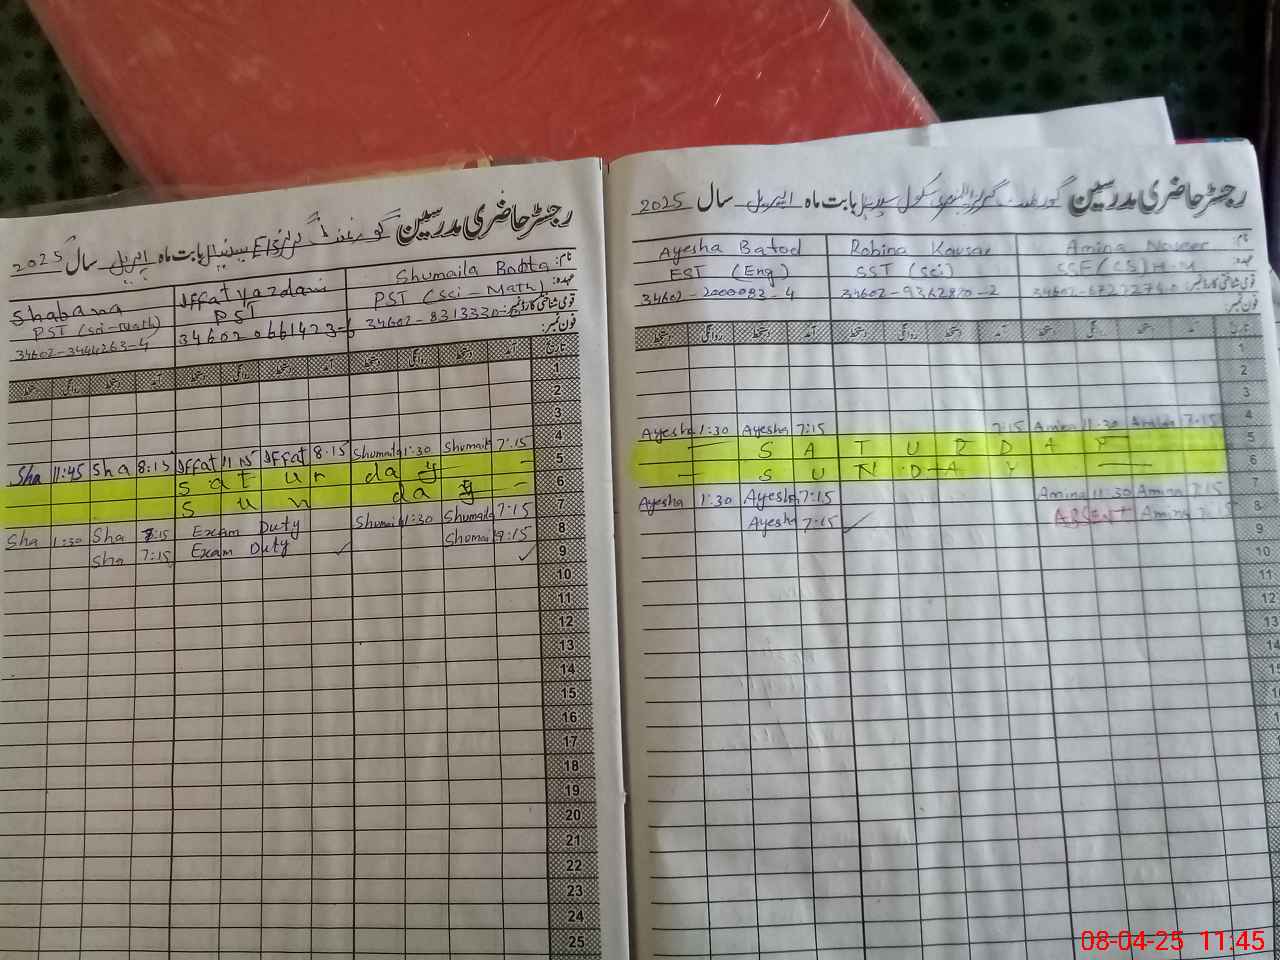 رجسٹر حاضری مدرسین گورنمنٹ گرلز ایلیمنٹری سکول بابت ماہ اپریل سال 2025
نام: Amina Naveer Robina Kousar Ayesha Batool
عہدہ: SST (Sci) EST (Eng)
قومی شناختی کارڈ نمبر: 34602-9362810-2 34602-2000083-4
فون نمبر:
تاریخ آمد دستخط روانگی دستخط آمد دستخط روانگی دستخط آمد دستخط روانگی دستخط
1
2
3
4 7:15 Amina 11:30 Amina 7:15 7:15 Ayesha 1:30 Ayesha
5 SATURDAY
6 SUNDAY
7 7:15 Amina 11:30 Amina 7:15 Ayesha 1:30 Ayesha
8 7:15 Amina ABSENT 7:15 Ayesha
9
10
11
12
13
14
15
رجسٹر حاضری مدرسین گورنمنٹ گرلز E/S بابت ماہ اپریل سال 2025
نام: Shumaila Iffat yazdani Shabana
عہدہ: PST (Sci-Math) PST PST (Sci-Math)
قومی شناختی کارڈ نمبر: 34602-8313330 34602-0661423-6 34602-3444263-4
فون نمبر:
تاریخ آمد دستخط روانگی دستخط آمد دستخط روانگی دستخط آمد دستخط روانگی دستخط
1
2
3
4 7:15 Shumaila 1:30 Shumaila 8:15 Iffat 11:45 Iffat 8:15 Sha 11:45 Sha
5 Saturday
6 Sunday
7 7:15 Shumaila 1:30 Shumaila Exam Duty 7:15 Sha 1:30 Sha
8 Shumai Exam Duty 7:15 Sha
9
10
11
12
13
14
15
16
17
18
19
20
21
22
23
24
25
08-04-25 11:45